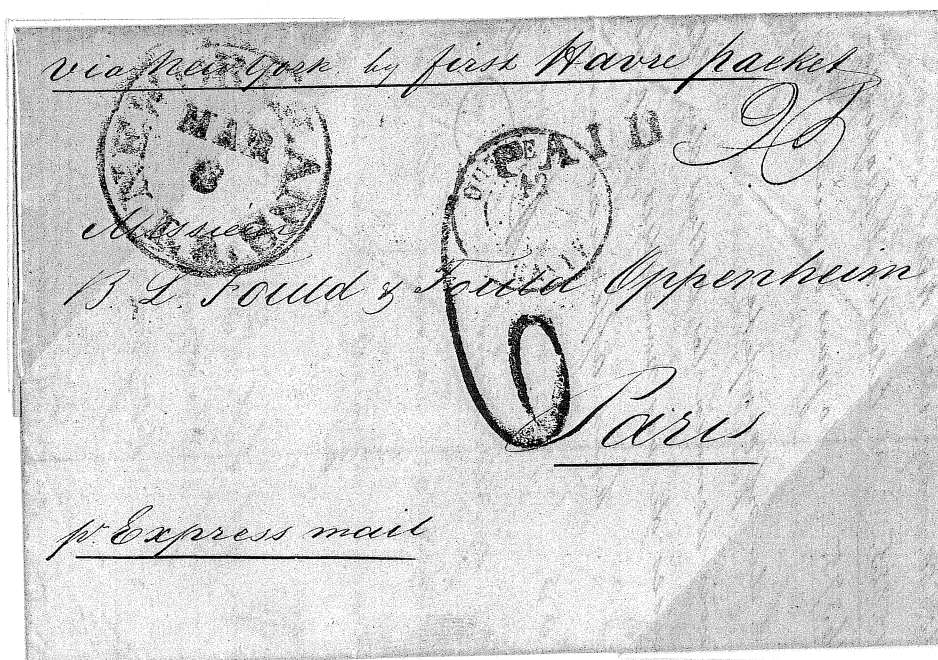 via New York by first Havre packet
MAR
6
PAID
Messieurs
B. L. Fould & Fould Oppenheim
6
Paris
pr. Express mail